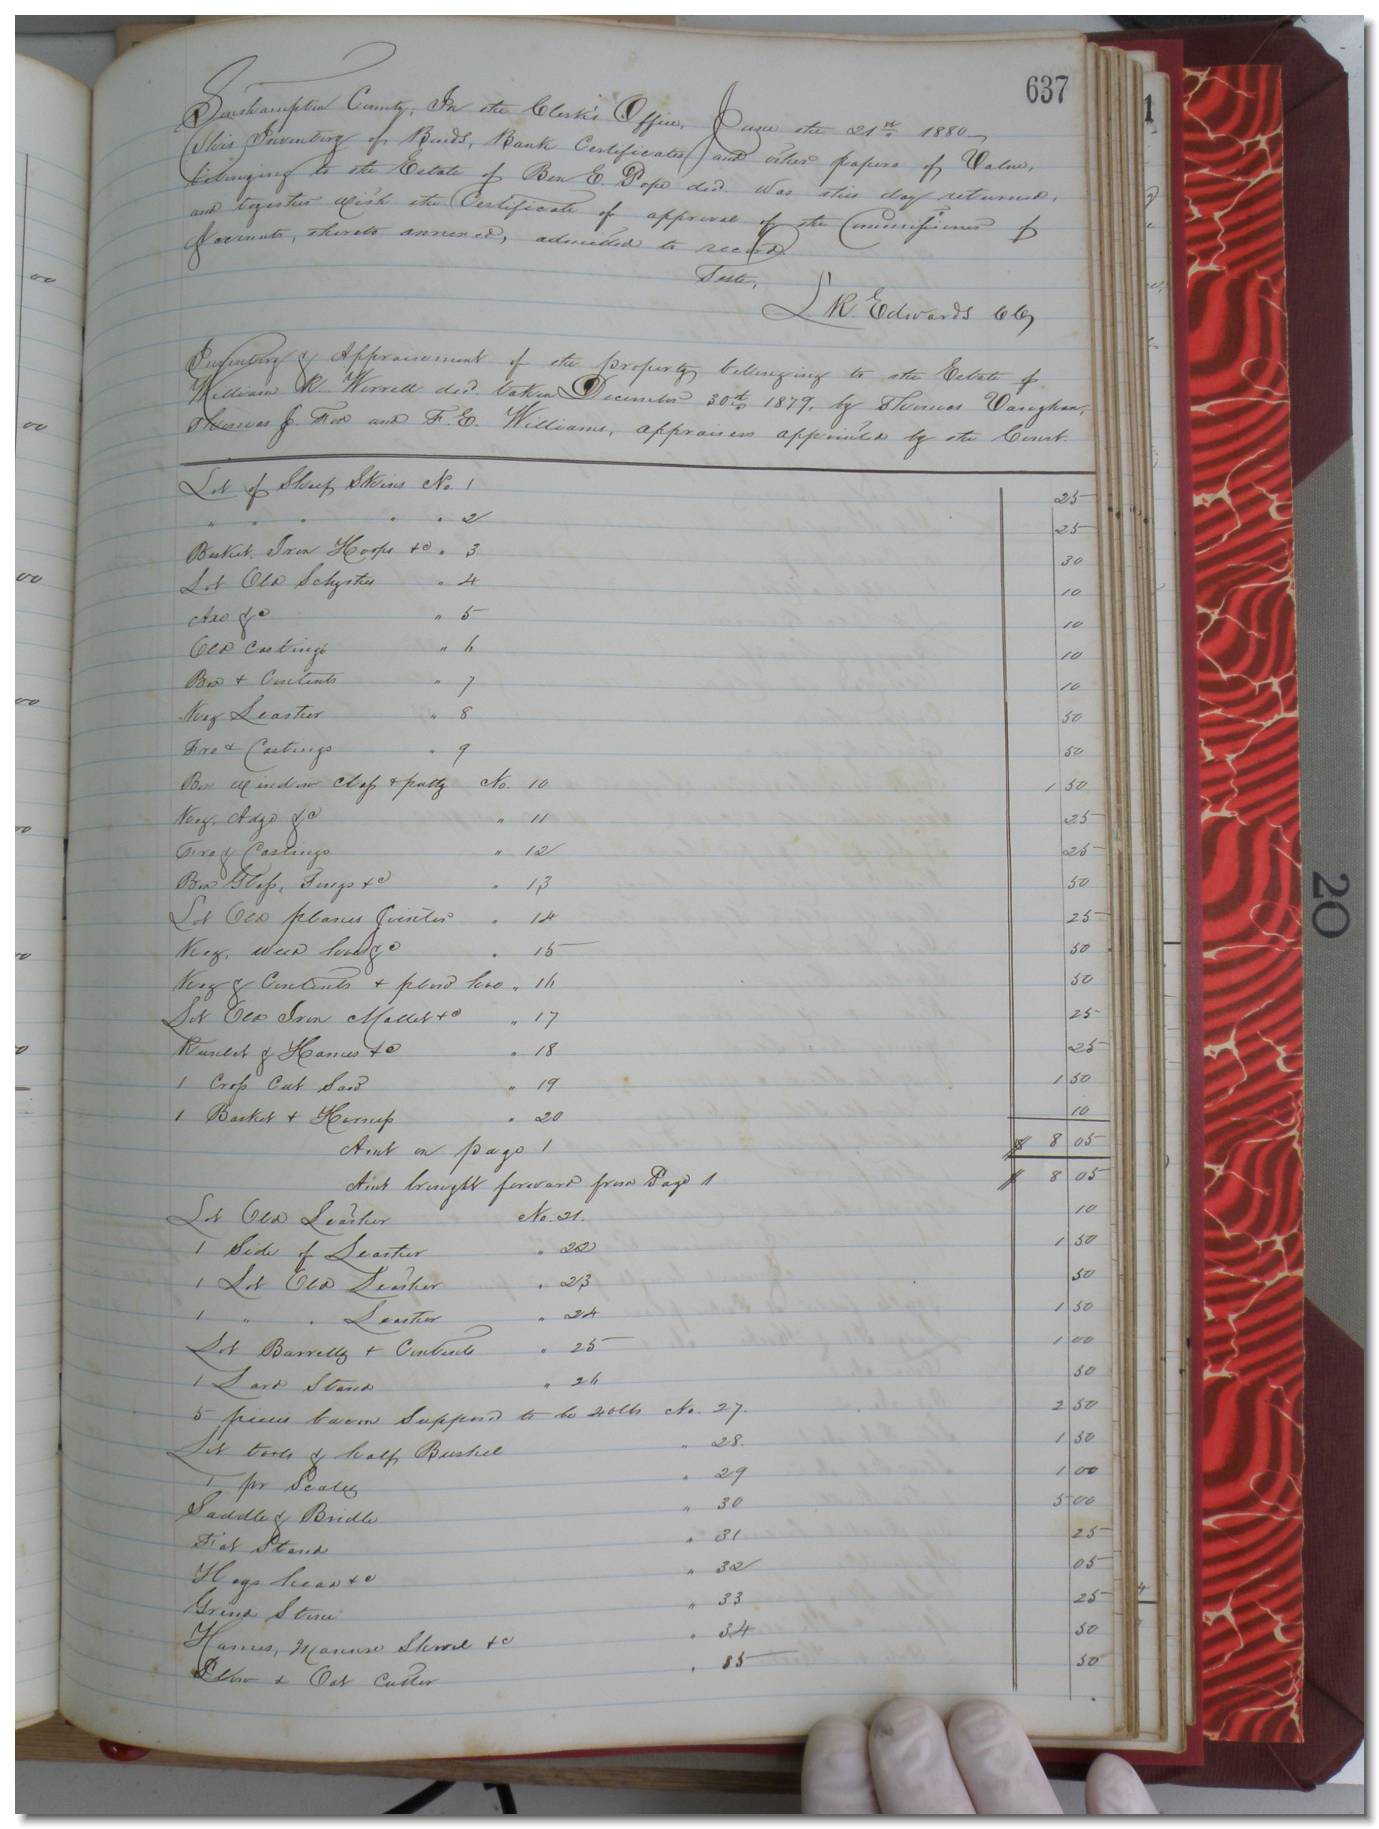 637
Southampton County, In the Clerk's Office, June the 21st 1880
This Inventory of Bonds, Bank Certificates and other papers of Value,
belonging to the Estate of Ben E. Pope decd. was this day returned,
and together with the Certificate of approval of the Commissioner of
Accounts, thereto annexed, admitted to record.
Teste,
L R Edwards CC
Inventory & Appraisement of the property belonging to the Estate of
William R. Worrell decd. taken December 30th 1879, by Thomas Vaughan,
Thomas J. Fox and F. E. Williams, appraisers appointed by the Court.
Lot of Sheep Skins No. 1 25
" " " " " 2 25
Basket Iron Hoops &c " 3 30
Lot Old Schythes " 4 10
Axe &c " 5 10
Old Castings " 6 10
Box & Contents " 7 10
Keg Leather " 8 50
Fro & Castings " 9 50
Box window Glass & putty No. 10 1 50
Keg, Adze &c " 11 25
Fro & Castings " 12 25
Box Glass, Tongs &c " 13 50
Lot Old planes Jointer " 14 25
Keg, weed hoes &c " 15 50
Keg & Contents & plow hoe " 16 50
Lot Old Iron Mallet &c " 17 25
Runlet & Hames &c " 18 25
1 Cross Cut Saw " 19 1 50
1 Basket & " 20 10
Amt on page 1 $ 8 05
Amt brought forward from Page 1 $ 8 05
Lot Old Leather No. 21. 10
1 Side of Leather " 22 1 50
1 Lot Old Leather " 23 50
1 " " Leather " 24 1 50
Lot Barrells & Contents " 25 1 00
1 Lard Stand " 26 50
5 pieces bacon Supposed to be 40lbs No. 27. 2 50
Lot tools & half Bushel " 28. 1 50
1 pr Scales " 29 1 00
Saddle & Bridle " 30 5 00
Fat Stand " 31 25
Hogs head &c " 32 05
Grind Stone " 33 25
Hames, Manure Shovel &c " 34 50
Plow & Oat Cutter " 35 50
20